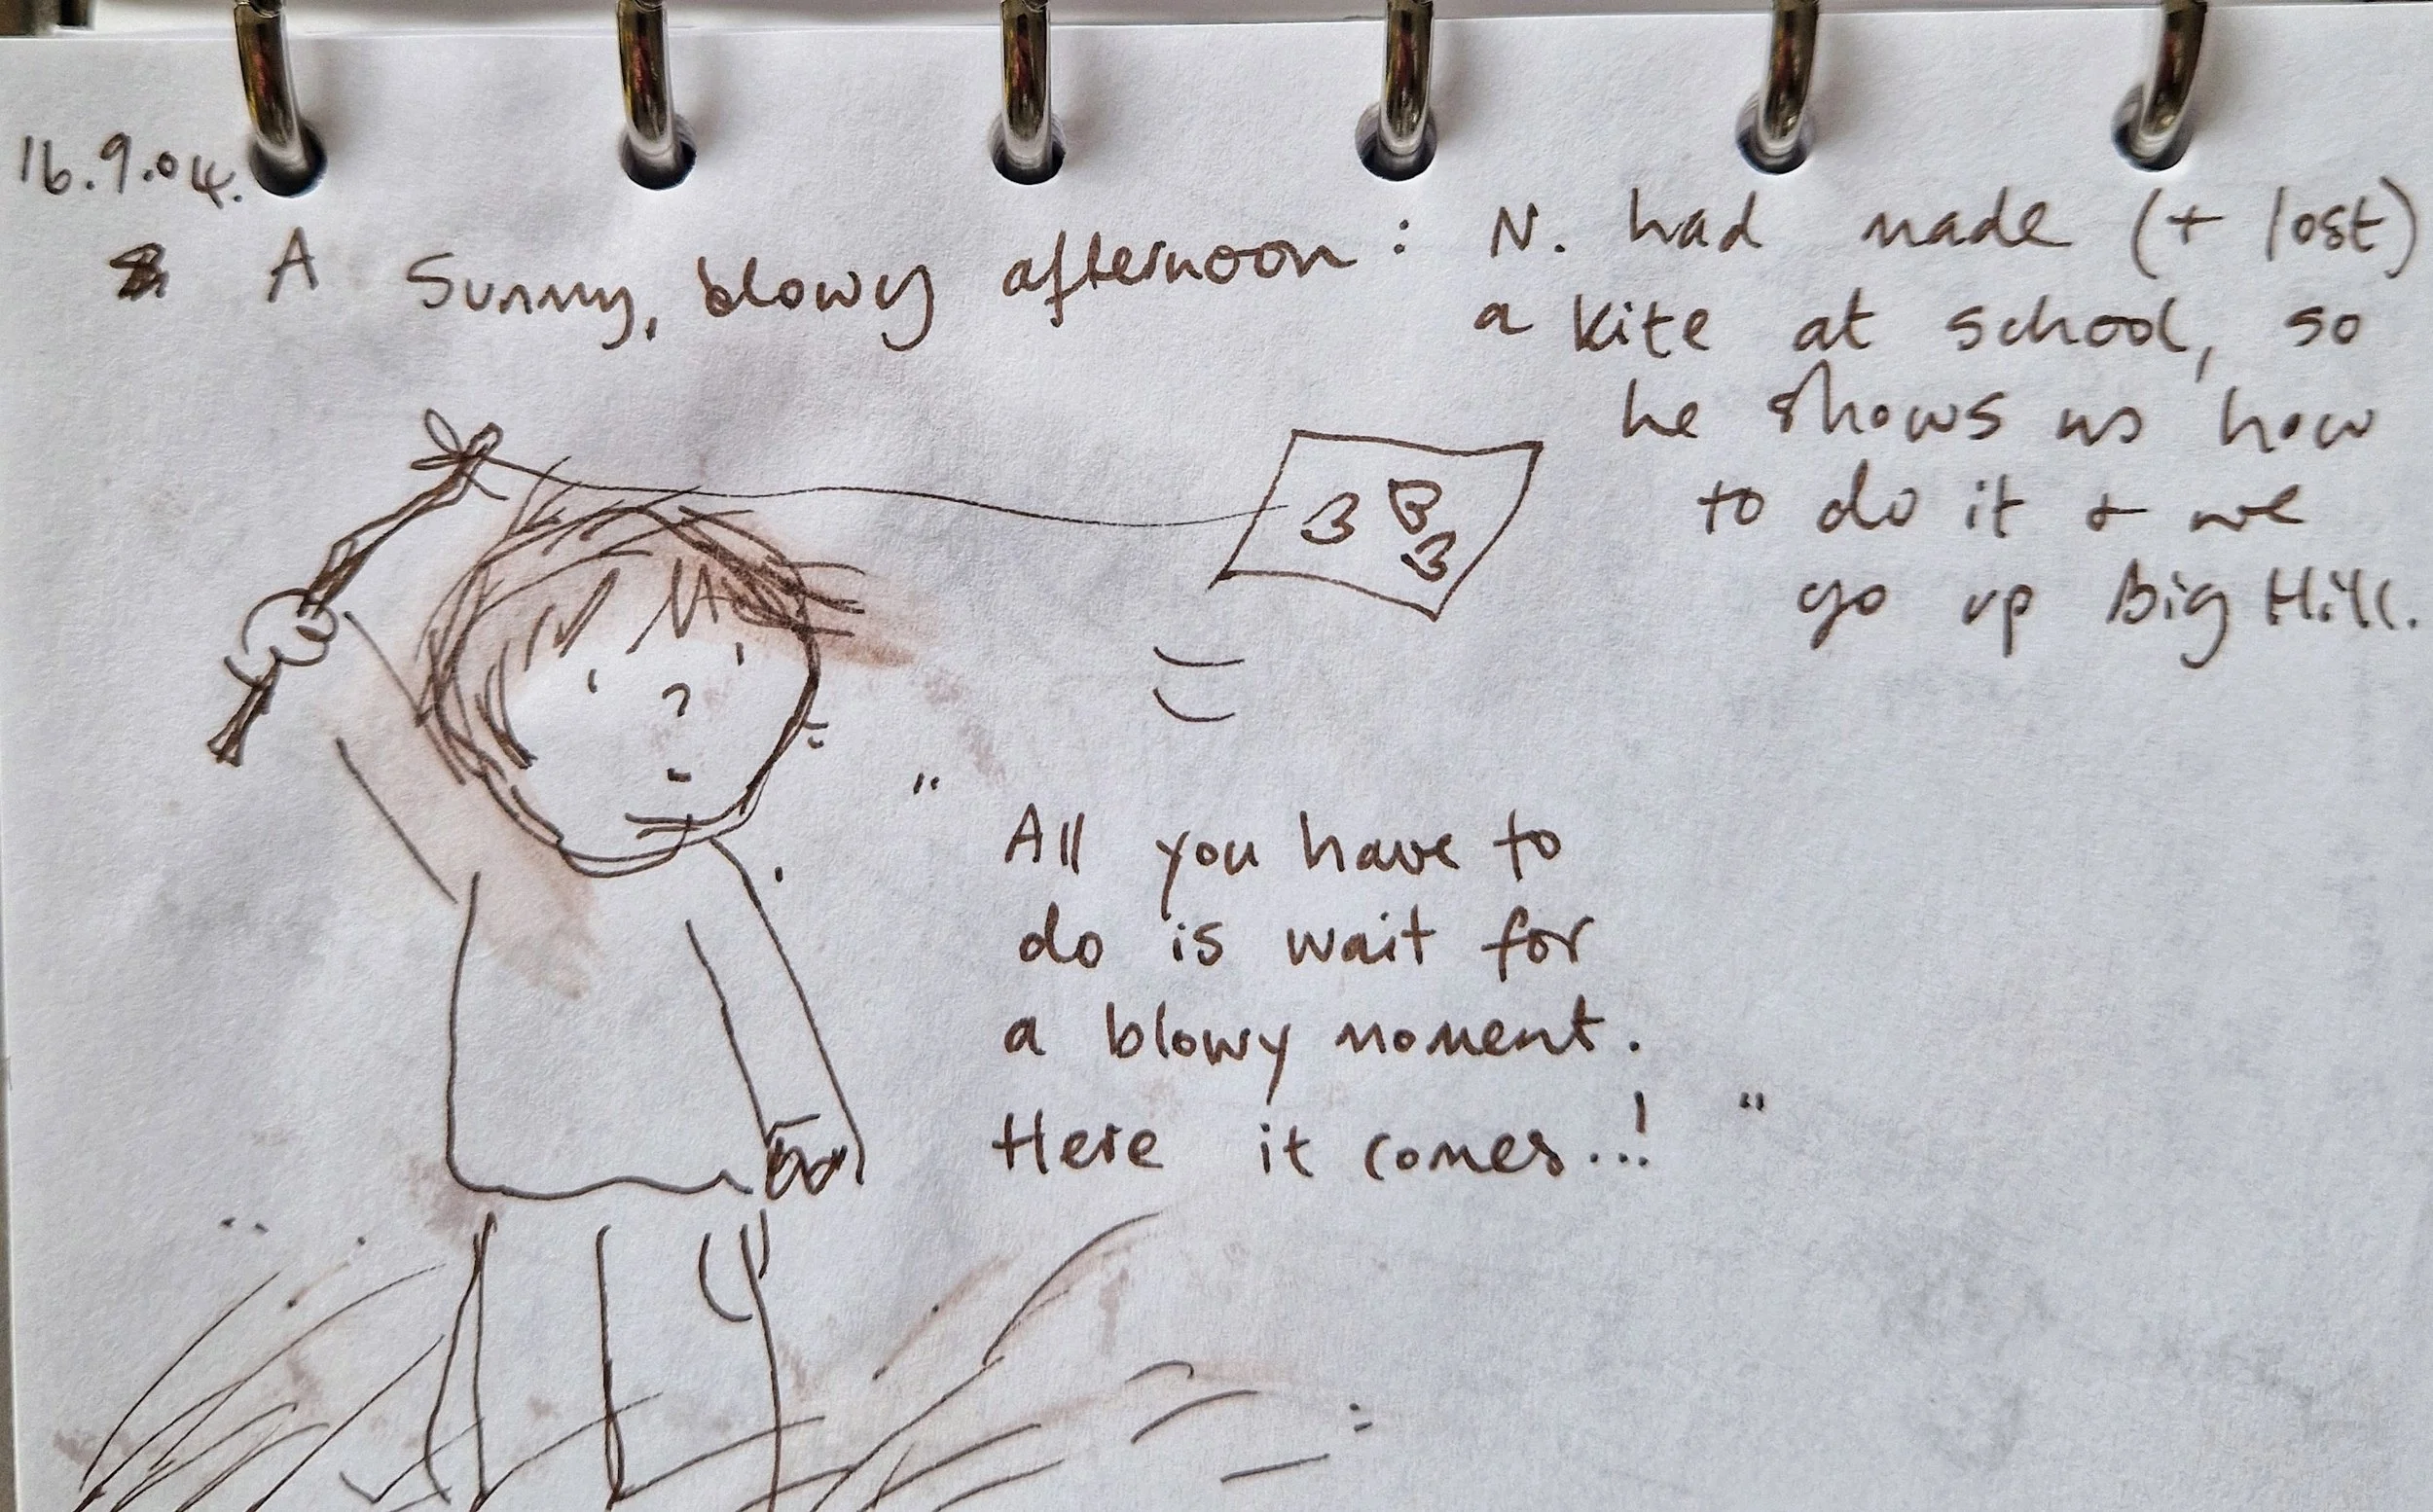 16.9.04.
A Sunny, blowy afternoon: N. had made (+ lost)
a kite at school, so
he shows us how
to do it + we
go up Big Hill.
B B
B
"All you have to
do is wait for
a blowy moment.
Here it comes...! "